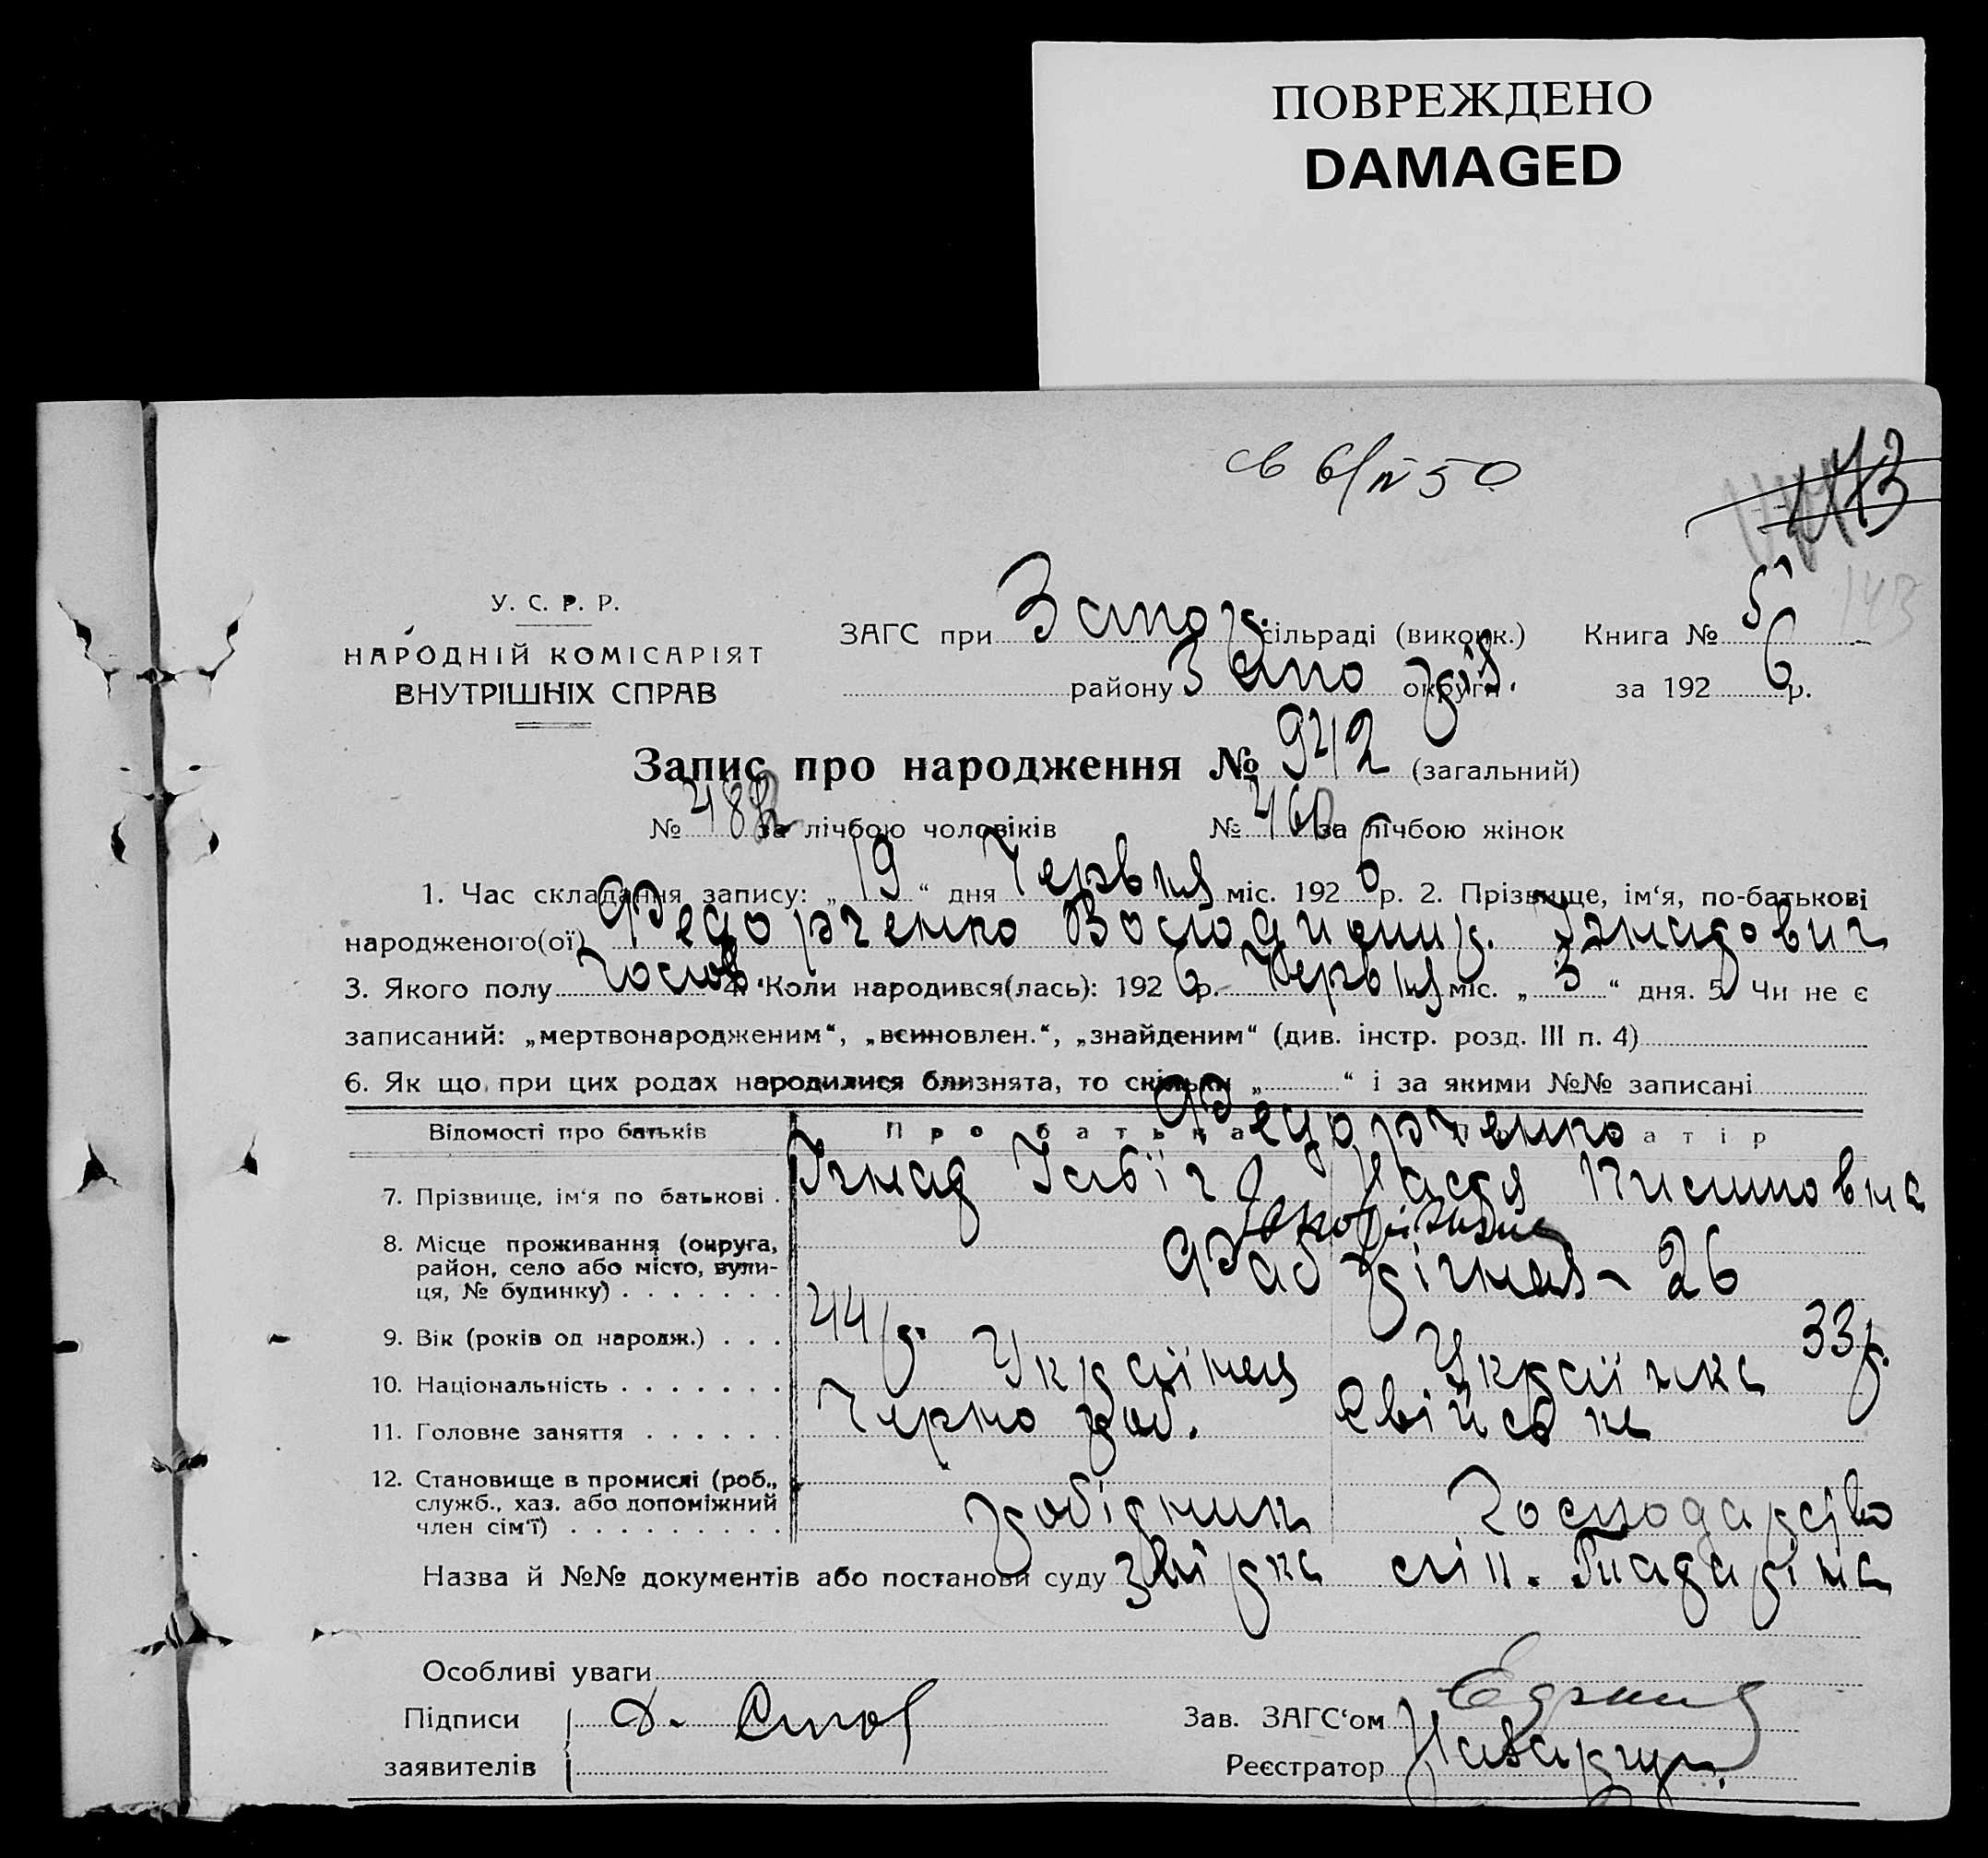 ПОВРЕЖДЕНО
DAMAGED
св 6/IV 50
143
143
У. С. Р. Р.
НАРОДНІЙ КОМІСАРІЯТ
ВНУТРІШНІХ СПРАВ
ЗАГС при Запор. сільраді (виконк.) Книга № 5
району Запоріз. округи за 1926 р.
Запис про народження № 942 (загальний)
№ 482 за лічбою чоловіків № 460 за лічбою жінок
1. Час складання запису: „19“ дня Червня міс. 1926 р. 2. Прізвище, ім‘я, по-батькові
народженого(ої) Федорченко Володимир. Ігнатович
3. Якого полу Чолов. 4. Коли народився(лась): 1926 р. Червня міс. „3“ дня. 5. Чи не є
записаний: „мертвонародженим“, „всиновлен.“, „знайденим“ (див. інстр. розд. III п. 4)
6. Як що при цих родах народилися близнята, то скільки „ “ і за якими №№ записані
Відомості про батьків Про батька Про матір
Федорченко
7. Прізвище, ім‘я по батькові Ігнат Настя
8. Місце проживання (округа, район, село або місто, вули-
ця, № будинку) Фабрічная - 26
9. Вік (років од народж.) 44 р. 33 р.
10. Національність Українец Українка
11. Головне заняття Чернороб. Свійське
12. Становище в промислі (роб.,
служб., хаз. або допоміжний
член сім‘ї) робітник господарство
Назва й №№ документів або постанови суду
Особливі уваги
Підписи
заявителів
Зав. ЗАГС‘ом
Реєстратор